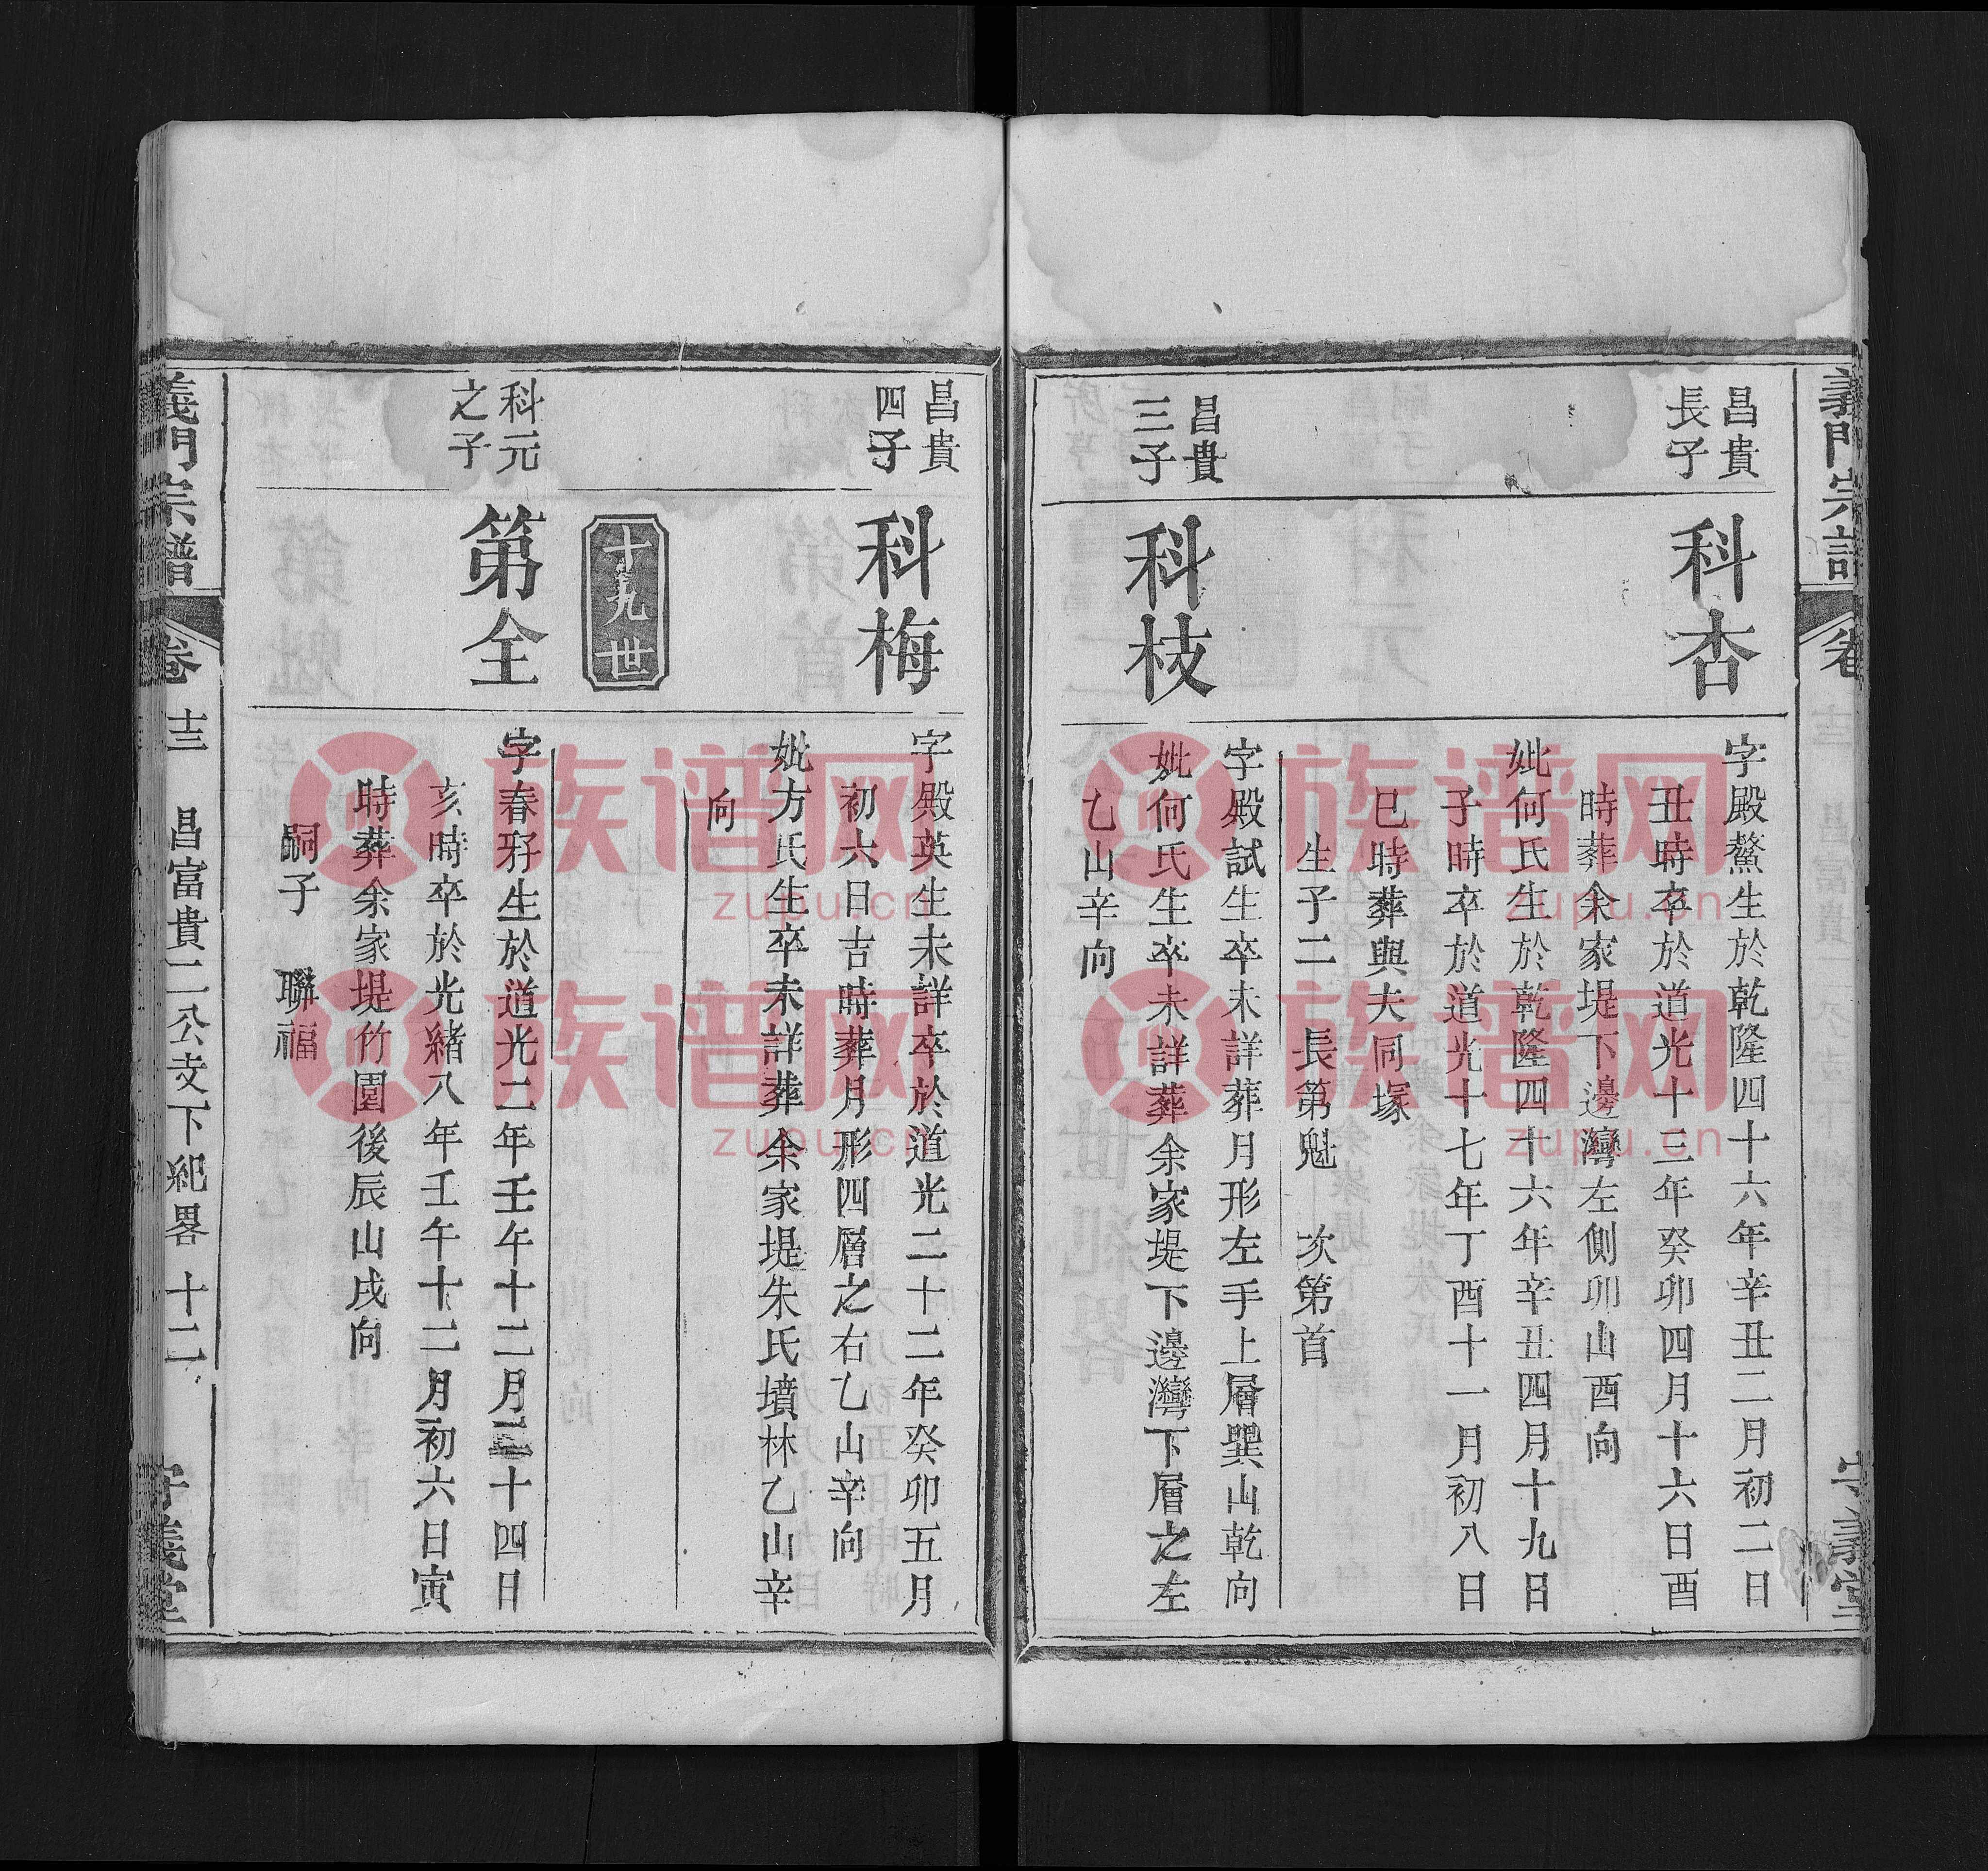 義門宗譜
卷
守義堂
昌貴
長子
科杏
字殿鰲生於乾隆四十六年辛丑二月初二日
丑時卒於道光十三年癸卯四月十六日酉
時葬余家堤下邊灣左側卯山酉向
妣何氏生於乾隆四十六年辛丑四月十九日
子時卒於道光十七年丁酉十一月初八日
巳時葬與夫同塚
生子二 長第魁 次第首
昌貴
三子
科枝
字殿試生卒未詳葬月形左手上層巽山乾向
妣何氏生卒未詳葬余家堤下邊灣下層之左
乙山辛向
昌貴
四子
科梅
字殿英生未詳卒於道光二十二年癸卯五月
初六日吉時葬月形四層之右乙山辛向
妣方氏生卒未詳葬余家堤朱氏墳林乙山辛
向
十九世
科元
之子
第全
字春野生於道光二年壬午十二月二十四日
亥時卒於光緒八年壬午十二月初六日寅
時葬余家堤竹園後辰山戌向
嗣子 聯福
義門宗譜
卷 十三 昌富貴二公支下紀畧 十二
守義堂
族谱网
zupu.cn
族谱网
zupu.cn
族谱网
zupu.cn
族谱网
zupu.cn